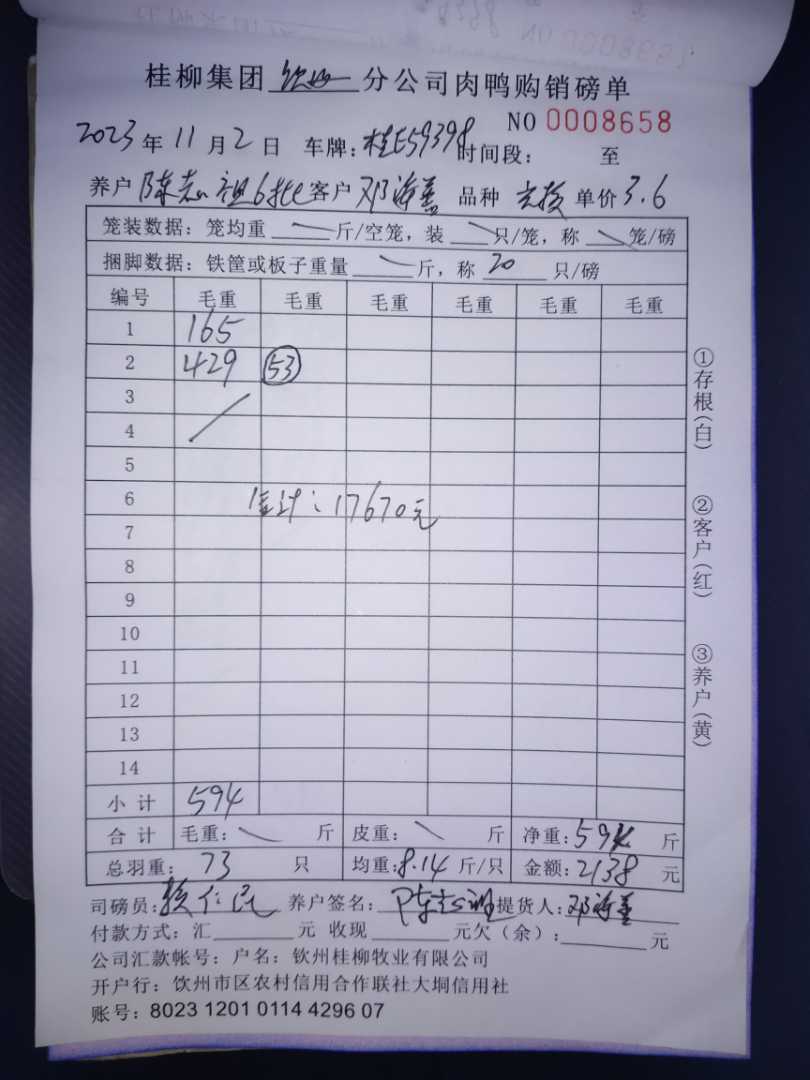 桂柳集团 钦州 分公司肉鸭购销磅单
NO 0008658
2023年11月2日 车牌:桂E59398 时间段: 至
养户 陈志祖6批 客户 邓海善 品种 单价 3.6
笼装数据:笼均重 斤/空笼,装 只/笼,称 笼/磅
捆脚数据:铁筐或板子重量 斤,称 20 只/磅
编号 毛重 毛重 毛重 毛重 毛重 毛重
1 165
2 429 53
3
4
5
6
合计:17670元
7
8
9
10
11
12
13
14
小计 594
合计 毛重: 斤 皮重: 斤 净重:594 斤
总羽重:73 只 均重:8.14 斤/只 金额:2138 元
司磅员: 仁民 养户签名:陈志祖 提货人:邓海善
付款方式:汇 元 收现 元欠(余): 元
公司汇款帐号:户名:钦州桂柳牧业有限公司
开户行:饮州市区农村信用合作联社大垌信用社
账号:8023 1201 0114 4296 07
①存根(白)
②客户(红)
③养户(黄)